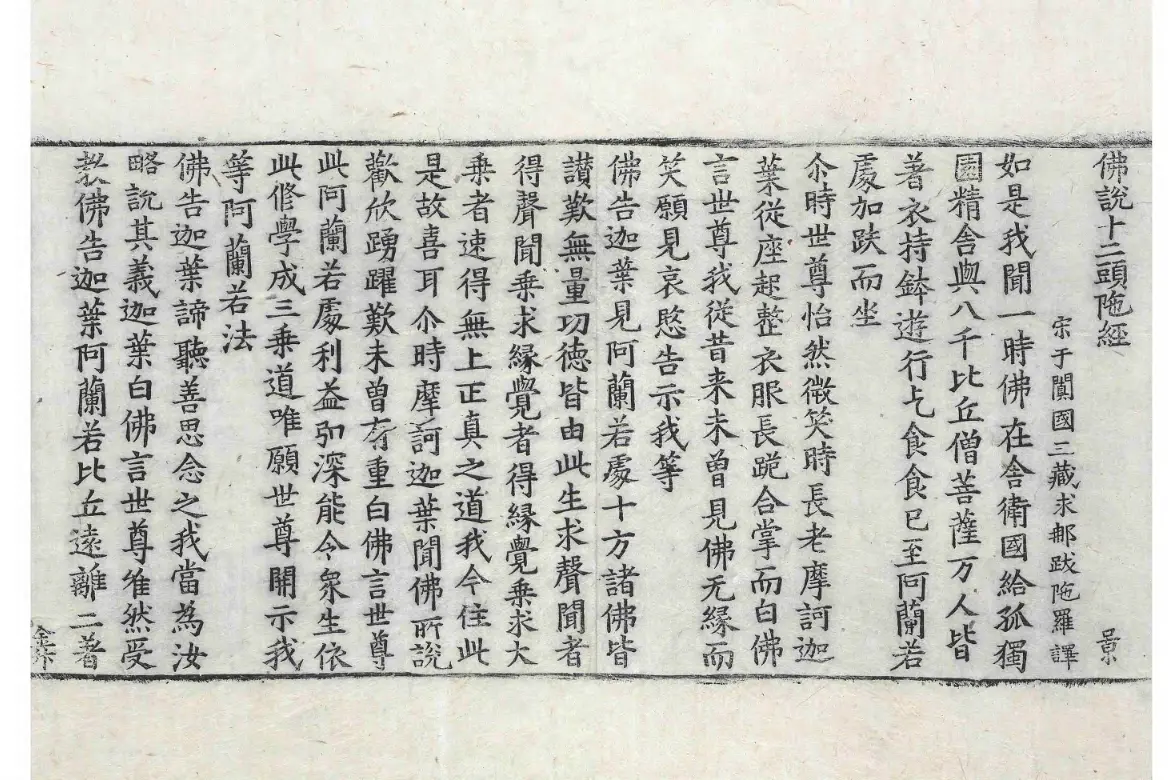 佛說十二頭陁經 景
宋于闐國三藏求郍跋陁羅譯
如是我聞一時佛在舍衛國給孤獨
園精舍與八千比丘僧菩薩万人皆
著衣持鉢遊行乞食食已至阿蘭若
處加趺而坐
尒時世尊怡然微笑時長老摩訶迦
葉從座起整衣服長跪合掌而白佛
言世尊我從昔来未曾見佛无緣而
笑願見哀愍告示我等
佛告迦葉見阿蘭若處十方諸佛皆
讃歎無量功德皆由此生求聲聞者
得聲聞乗求緣覺者得緣覺乗求大
乗者速得無上正真之道我今住此
是故喜耳尒時摩訶迦葉聞佛所說
歡欣踴躍歎未曾有重白佛言世尊
此阿蘭若處利益弘深能令衆生依
此修學成三乗道唯願世尊開示我
等阿蘭若法
佛告迦葉諦聽善思念之我當為汝
略說其義迦葉白佛言世尊唯然受
教佛告迦葉阿蘭若比丘遠離二著